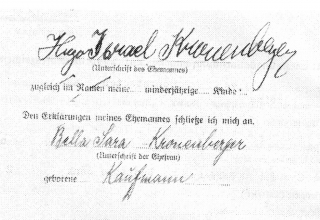 Hugo Israel Kronenberger
(Unterschrift des Ehemannes)
zugleich im Namen meine minderjährige Kinde
Den Erklärungen meines Ehemannes schließe ich mich an.
Bella Sara Kronenberger
(Unterschrift der Ehefrau)
geborene Kaufmann